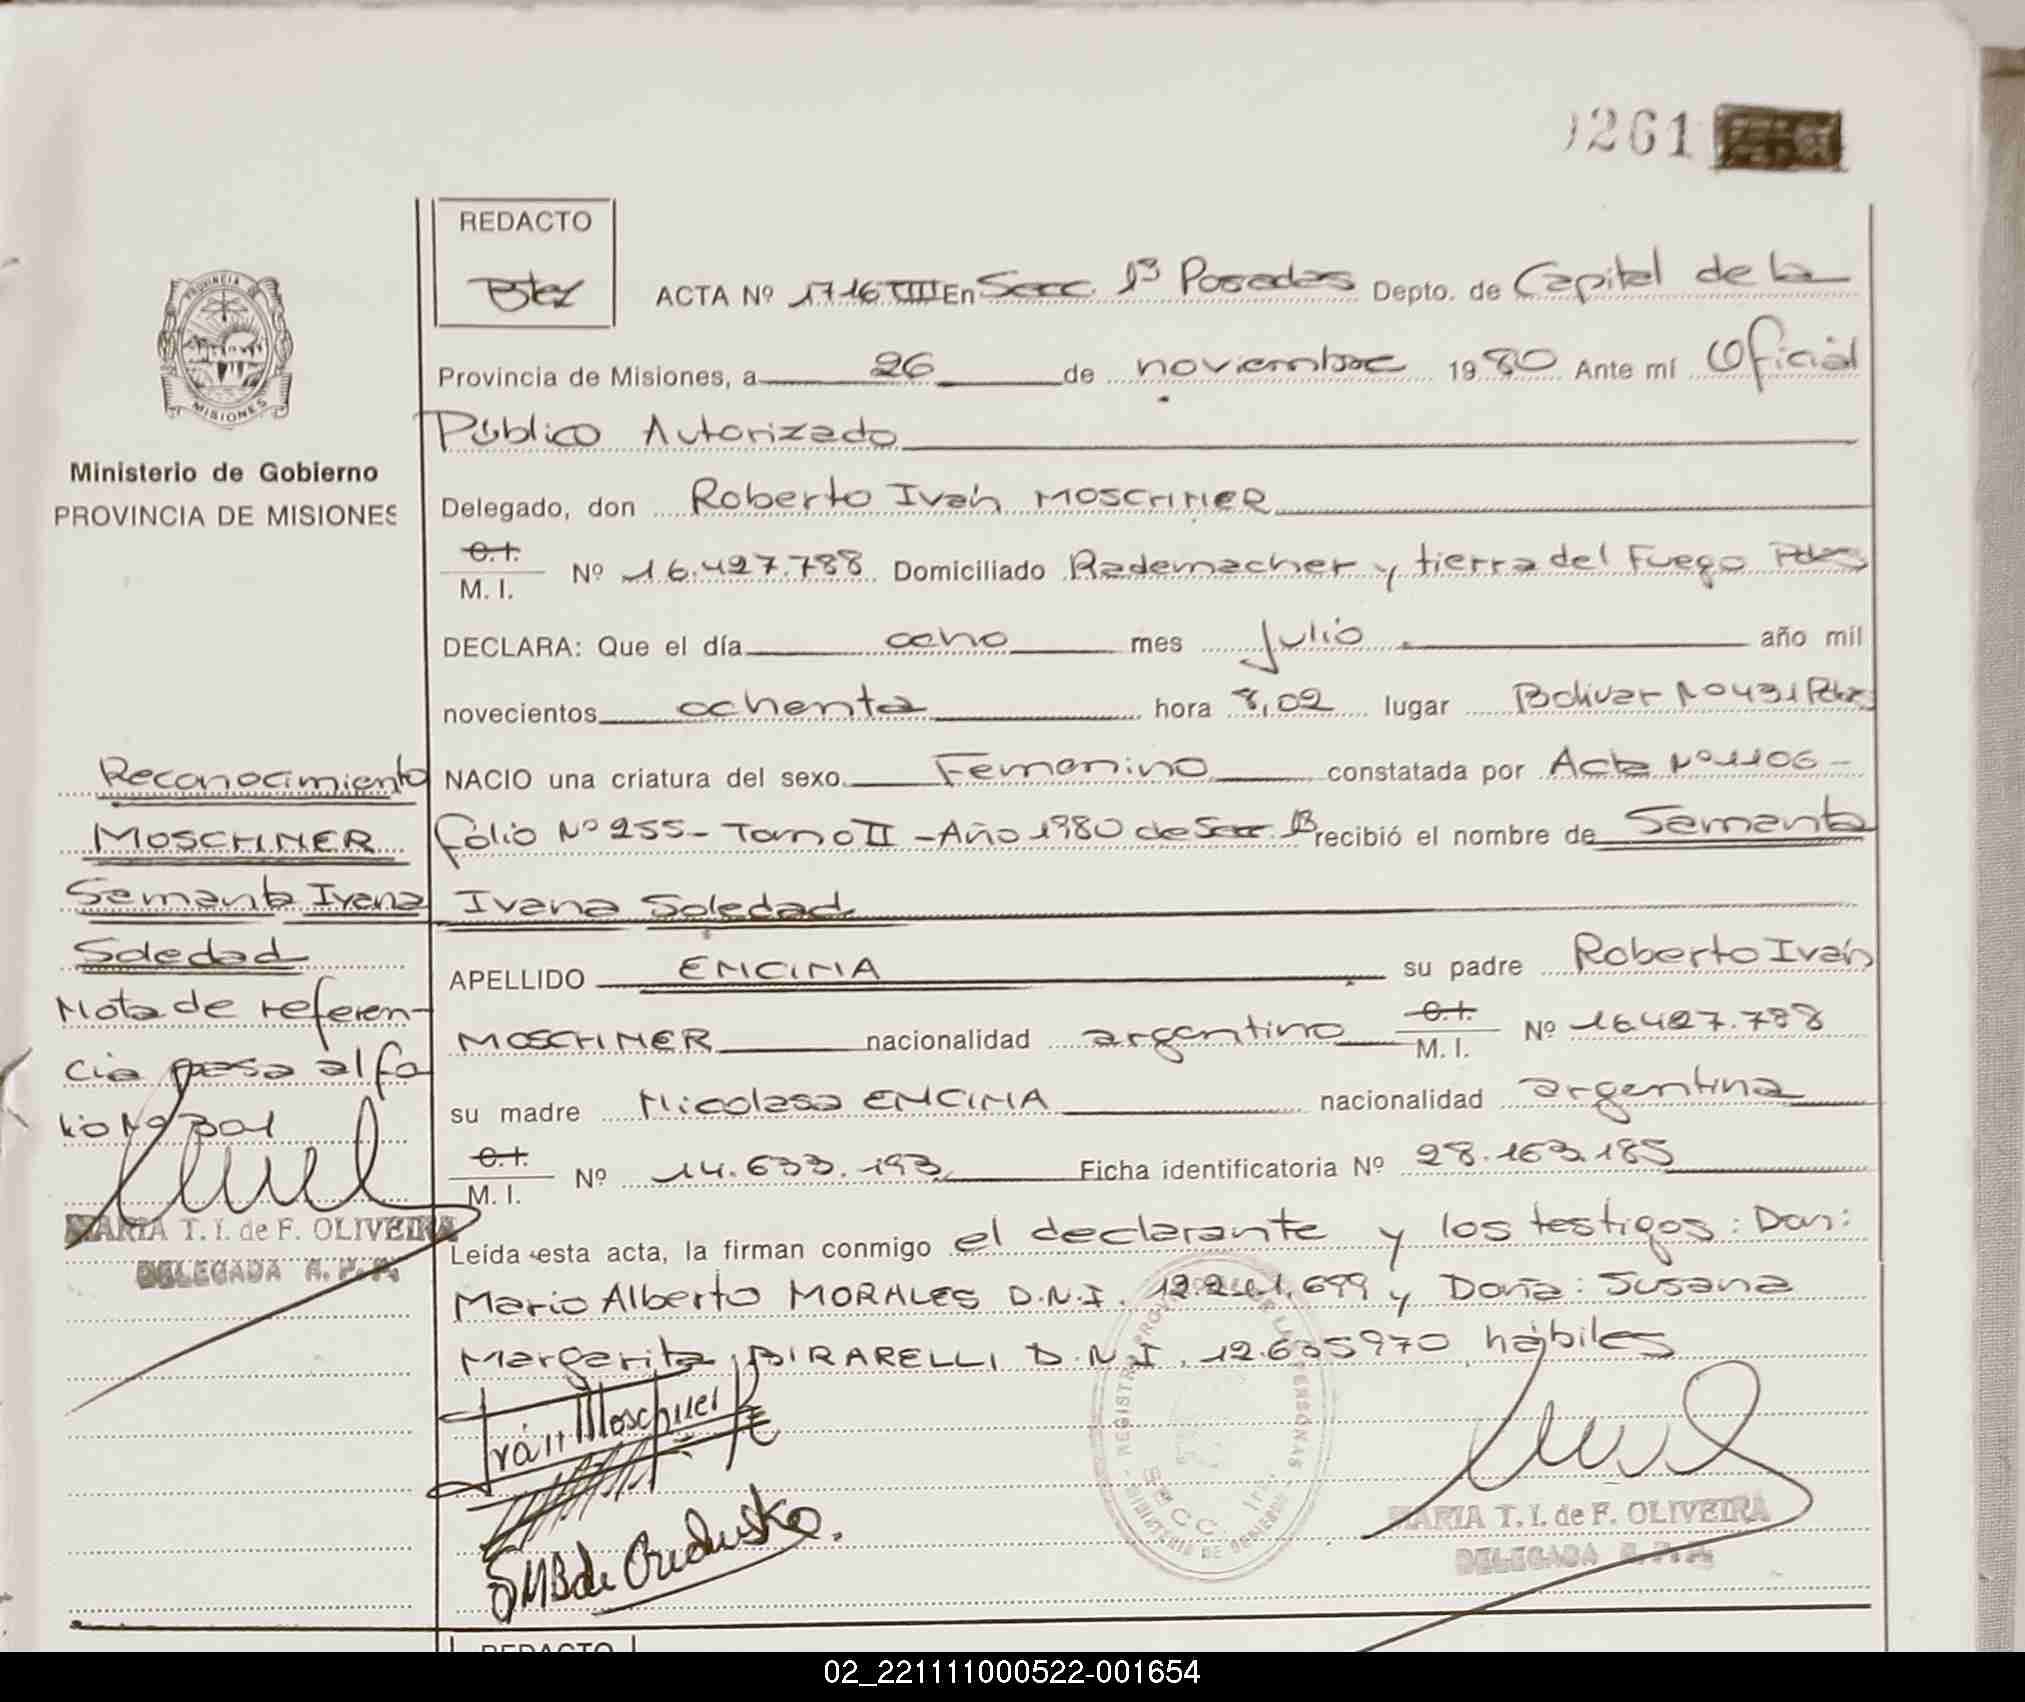 261
REDACTO
ACTA Nº 1716 En Secc. 1ª Posadas Depto. de Capital de la
Provincia de Misiones, a 26 de noviembre 1980 Ante mí Oficial
Público Autorizado
Delegado, don Roberto Iván MOSCHNER
C.I.
M. I. Nº 16.427.788 Domiciliado Rademacher y tierra del Fuego Pdas
DECLARA: Que el día ocho mes Julio año mil
novecientos ochenta hora 8,02 lugar Bolivar Nº 431 Pdas
NACIO una criatura del sexo Femenino constatada por Acta Nº 1106 -
folio Nº 255 - Tomo II - Año 1980 de Secc. 1ª recibió el nombre de Samanta
Ivana Soledad
APELLIDO ENCINA su padre Roberto Iván
MOSCHNER nacionalidad argentino C.I.
M. I. Nº 16.427.788
su madre Nicolasa ENCINA nacionalidad argentina
C.I.
M. I. Nº 14.633.193 Ficha identificatoria Nº 28.163.185
Leída esta acta, la firman conmigo el declarante y los testigos: Don:
Mario Alberto MORALES D.N.I. 12.241.699 y Doña: Susana
Margarita BIRARELLI D.N.I. 12.635970 hábiles
Iván Moschner
MARIA T. I. de F. OLIVEIRA
DELEGADA R. P. P.
REGISTRO PROVINCIAL DE LAS PERSONAS
MINISTERIO DE GOBIERNO
SECC. 1ra.
PROVINCIA DE
MISIONES
Ministerio de Gobierno
PROVINCIA DE MISIONES
Reconocimiento
MOSCHNER
Samanta Ivana
Soledad
Nota de referen-
cia pasa al fo
lio Nº 301
MARIA T. I. de F. OLIVEIRA
DELEGADA R. P. P.
REDACTO
02_221111000522-001654